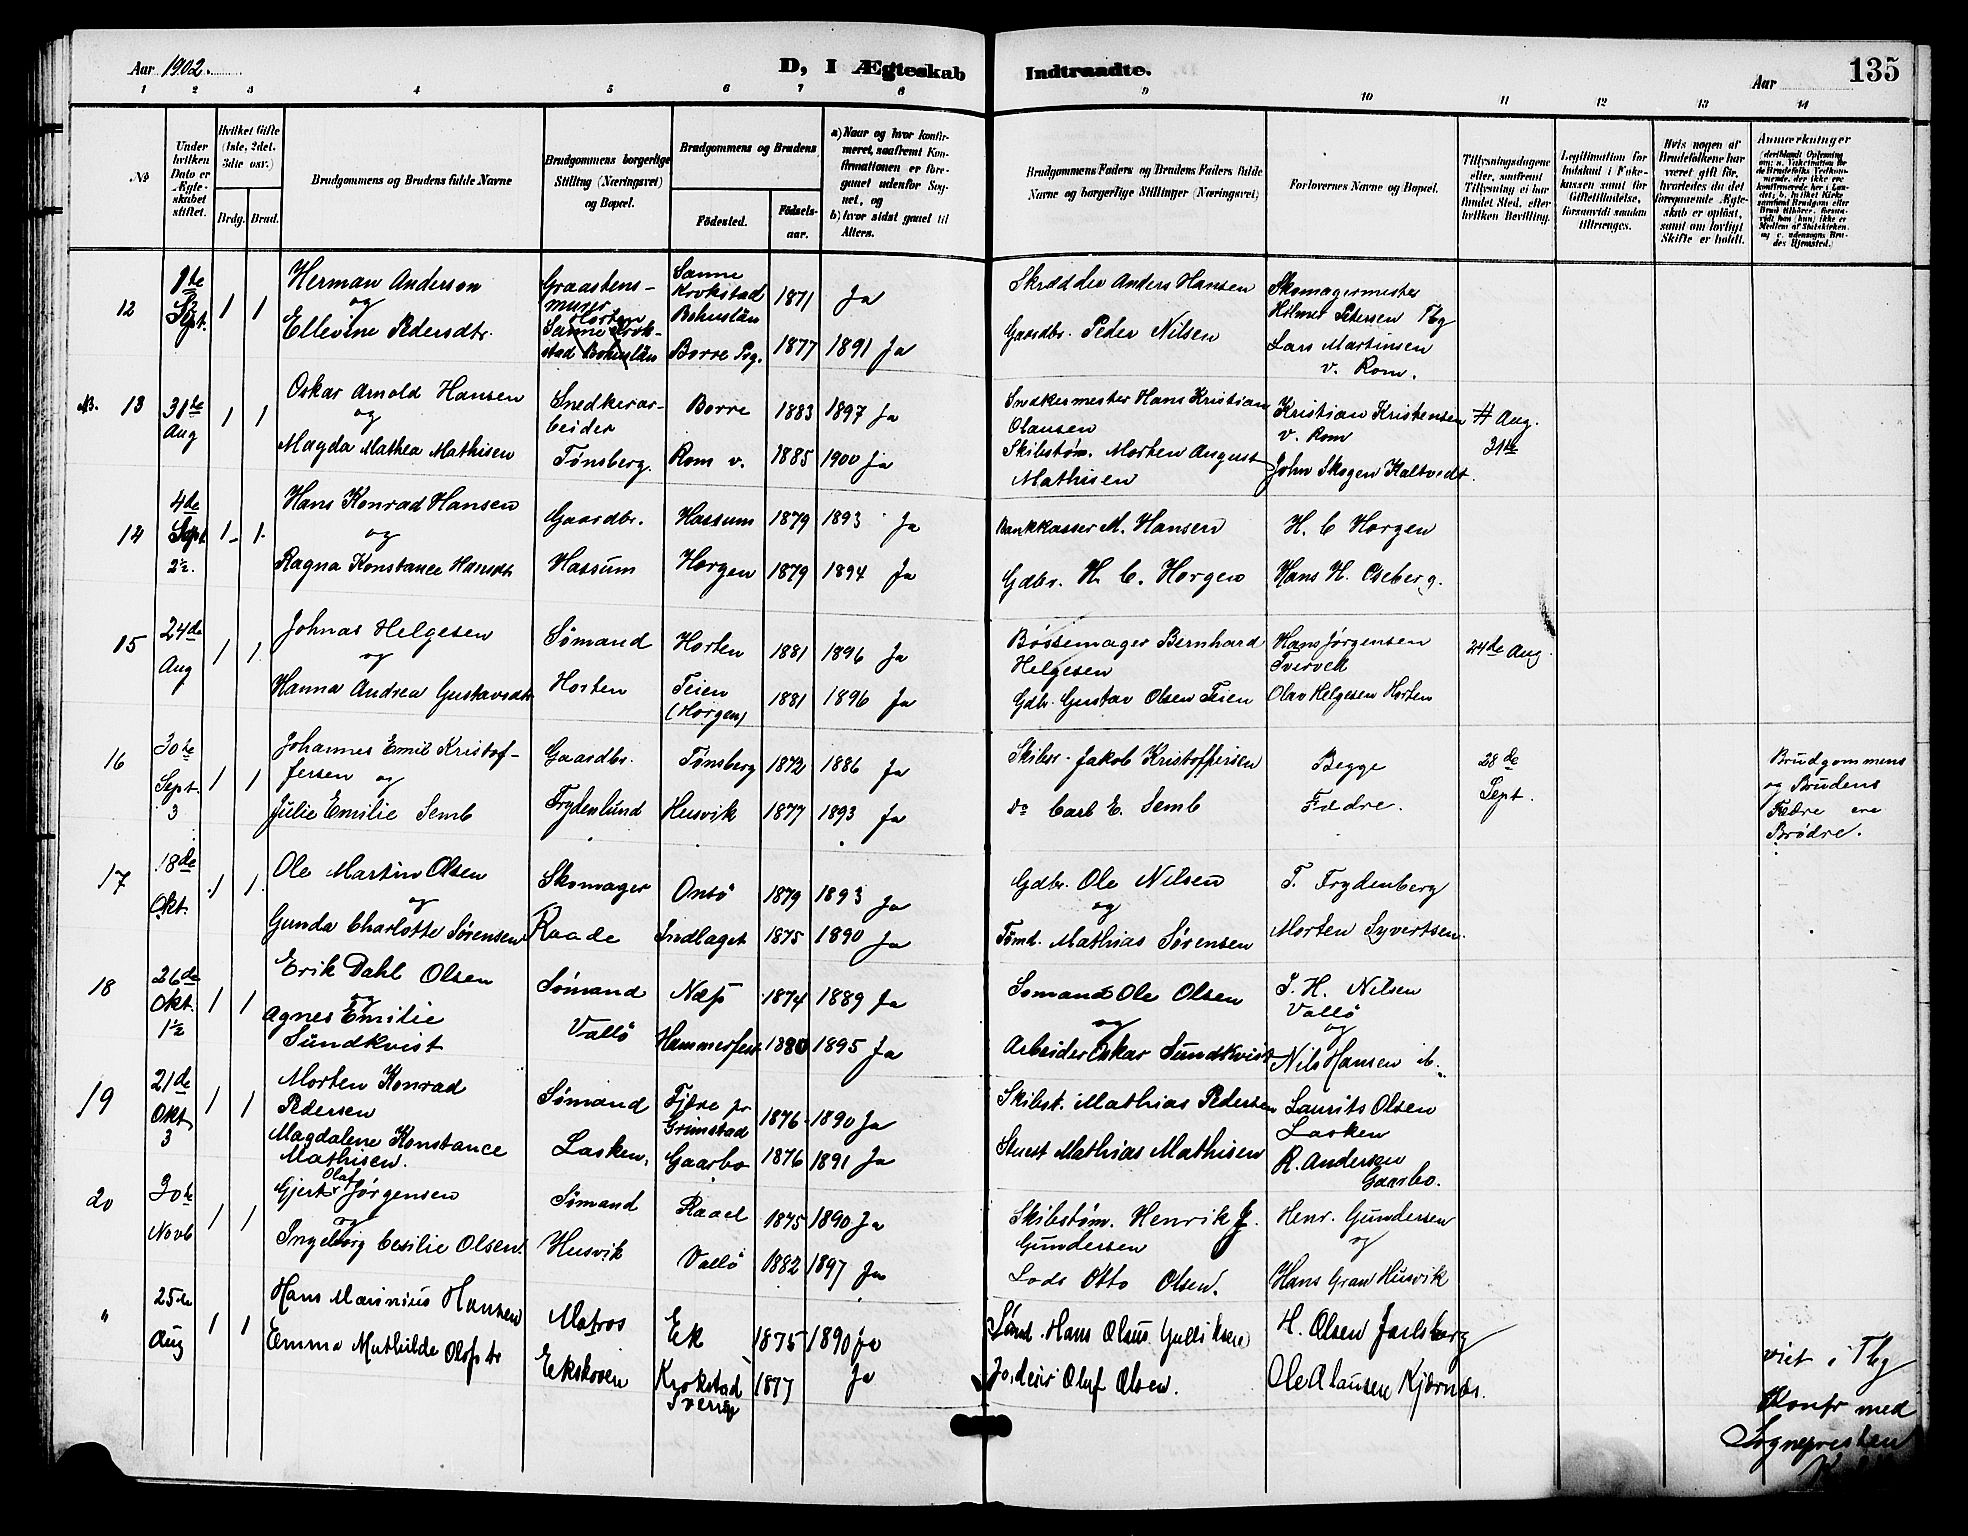 Aar 1902.
D, I Ægteskab Indtraadte.
Aar
135
1 2 3 4 5 6 7 8 9 10 11 12 13 14
No
Under hvilken Dato er Ægteskabet stiftet.
Hvilket Gifte (1ste, 2det, 3die osv.)
Brdg. Brud.
Brudgommens og Brudens fulde Navne
Brudgommens borgerlige Stilling (Næringsvei) og Bopæl.
Brudgommens og Brudens
Fødested.
Fødselsaar.
a) Naar og hvor konfirmeret, saafremt Konfirmationen er foregaaet udenfor Sognet, og
b) hvor sidst gaaet til Alters.
Brudgommens Faders og Brudens Faders fulde Navne og borgerlige Stillinger (Næringsvei)
Forlovernes Navne og Bopæl.
Tillysningsdagene eller, saafremt Tillysning ei har fundet Sted, efter hvilken Bevilling.
Legitimation for Indskud i Enkekassen samt for Giftetilladelse, forsaavidt saadan tiltrænges.
Hvis nogen af Brudefolkene har været gift før, hvorledes da det foregaaende Ægteskab er opløst, samt om lovligt Skifte er holdt.
Anmærkninger
12 1ste Sept. 1 1
Herman Anderson
og
Ellevine Pedersdtr.
Graastensmurer
Horten
Sanne Krokstad Bohuslän
Sanne Krokstad Bohuslän 1871 Ja
Borre Prg. 1877 1891 Ja
Skrædder Anders Hansen
Gaardbr. Peder Nilsen
Skomagermester
Hilmer Petersen Tbg
Lars Martinsen
v. Rom.
NB. 13 31te Aug 1 1
Oskar Arnold Hansen
og
Magda Mathea Mathisen
Snedkerarbeider
Tønsberg.
Borre 1883 1897 Ja
Rom v. 1885 1900 Ja
Snedkermester Hans Kristian
Olausen
Skibstøm. Morten August
Mathisen
Kristian Kristensen
v. Rom
John Skogen Kaltvedt.
Aug.
31te
14 4de Sept. 2½. 1 1
Hans Konrad Hansen
og
Ragna Konstance Hansdt.
Gaardbr.
Hassum
Hassum 1879 1893 Ja
Horgen 1879 1894 Ja
Bankkasser M. Hansen
Gdbr. H. C. Horgen
H. C Horgen
Hans H. Oseberg.
15 24de Aug 1 1
Johnas Helgesen
og
Hanna Andrea Gustavsdtr
Sømand
Horten
Horten 1881 1896 Ja
Teien (Horgen) 1881 1896 Ja
Bøssemager Bernhard
Helgesen
Gdbr. Gustav Olsen Teien
Hans Jørgensen
Tverved
Olav Helgesen Horten
24de Aug.
16 30te Sept. 3 1 1
Johannes Emil Kristoffersen og
Julie Emilie Semb
Gaardbr.
Frydenlund
Tønsberg 1872 1886 Ja
Husvik 1877 1893 Ja
Skibsr. Jakob Kristoffersen
do Carl E. Semb
Begge
Fædre.
28de
Sept.
Brudgommens
og Brudens
Fædre ere
Brødre.
17 18de Okt. 1 1
Ole Martin Olsen
og
Gunda Charlotte Sørensen
Skomager
Raade
Onsö 1879 1893 Ja
Indlaget 1875 1890 Ja
Gdbr. Ole Nilsen
og
Tømd. Mathias Sørensen
T. Frydenberg
Morten Syvertsen.
18 26de Okt. 1½ 1 1
Erik Dahl Olsen
og
Agnes Emilie
Sundkvist
Sømand
Vallö
Næss 1874 1889 Ja
Hammerfest 1880 1895 Ja
Sømand Ole Olsen
og
Arbeider Oskar Sundkvist
T. H. Nilsen
Vallö
og
Nils Hansen
19 21de Okt 3 1 1
Morten Konrad
Pedersen
Magdalene Konstance
Mathisen.
Sømand
Lasken.
Fjære pr Grimstad 1876 1890 Ja
Gaarbo 1876 1891 Ja
Skibst. Mathias Pedersen
Stuert Mathias Mathisen
Laurits Olsen
Lasken
R. Andersen
Gaarbo.
20 30te Novb 1 1
Gjert Olaf Jørgensen
og
Ingeborg Cesilie Olsen.
Sømand
Husvik
Raael 1875 1890 Ja
Vallö 1882 1897 Ja
Skibstøm. Henrik J.
Gundersen
Lods Otto Olsen.
Henr. Gundersen
og
Hans Gran Husvik
" 25de Aug 1 1
Hans Marinius Hansen
Emma Mathilde Olafsdtr
Matros
Ekskoven
Ek 1875 1890 Ja
Krokstad Sverrige 1877 Ja
Sømd. Hans Olsen Gulliksen
Olaf Olsen.
H. Olsen Jarlsberg
Ole A Lausen Kjærnes.
viet i Tbg
Konfr med
Sognepresten